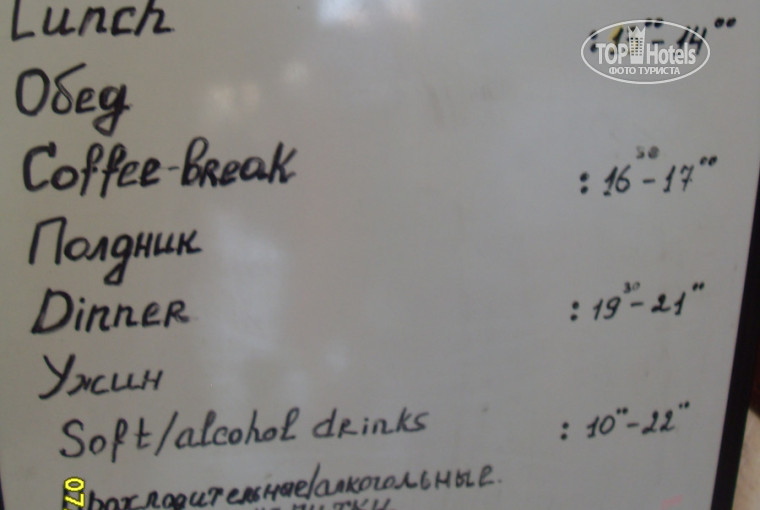 Lunch
- 14 ⁰⁰
TOP Hotels
ФОТО ТУРИСТА
Обед
Coffee-break : 16 ³⁰ - 17 ⁰⁰
Полдник
Dinner : 19 ³⁰ - 21 ⁰⁰
Ужин
Soft/alcohol drinks : 10 ⁰⁰ - 22 ⁰⁰
прохладительные/алкогольные
напитки
07